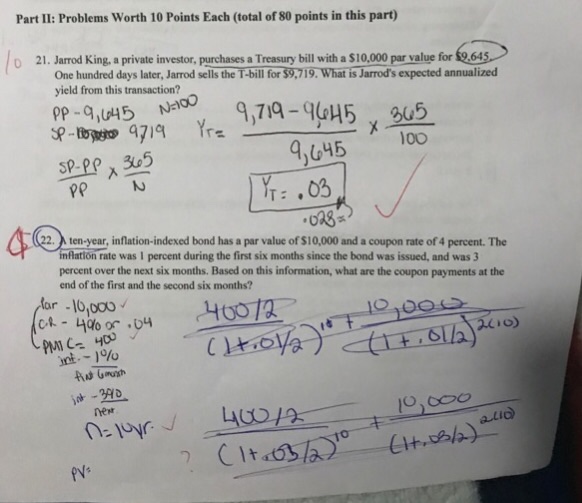 Part II: Problems Worth 10 Points Each (total of 80 points in this part)
10
21. Jarrod King, a private investor, purchases a Treasury bill with a $10,000 par value for $9,645.
One hundred days later, Jarrod sells the T-bill for $9,719. What is Jarrod's expected annualized
yield from this transaction?
PP - 9,645 N=100
SP - 9719
SP-PP x 365
PP N
YT = 9,719 - 9645 x 365
9,645 100
YT = .03
.028
22. A ten-year, inflation-indexed bond has a par value of $10,000 and a coupon rate of 4 percent. The
inflation rate was 1 percent during the first six months since the bond was issued, and was 3
percent over the next six months. Based on this information, what are the coupon payments at the
end of the first and the second six months?
Par - 10,000 ✓
C.R - 4% or .04
PMT C = 400
int. - 1%
first 6 month
int - 3%
next
n = 10yr. ✓
PV=
400/2 + 10,000
(1+.01/2)^10 (1+.01/2)^2(10)
?
400/2 + 10,000
(1+.03/2)^10 (1+.03/2)^2(10)